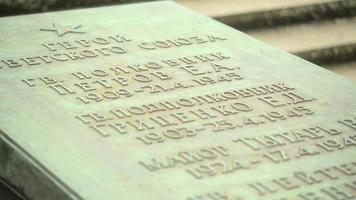 ГЕРОИ
СОВЕТСКОГО СОЮЗА
ГВ. ПОЛКОВНИК
ПЕТРОВ Е.А.
1909-21.4.1945
ГВ. ПОДПОЛКОВНИК
ГРИЦЕНКО Е.Д.
1903-23.4.1945
МАЙОР ТЫГАРЬ
-17.4.194